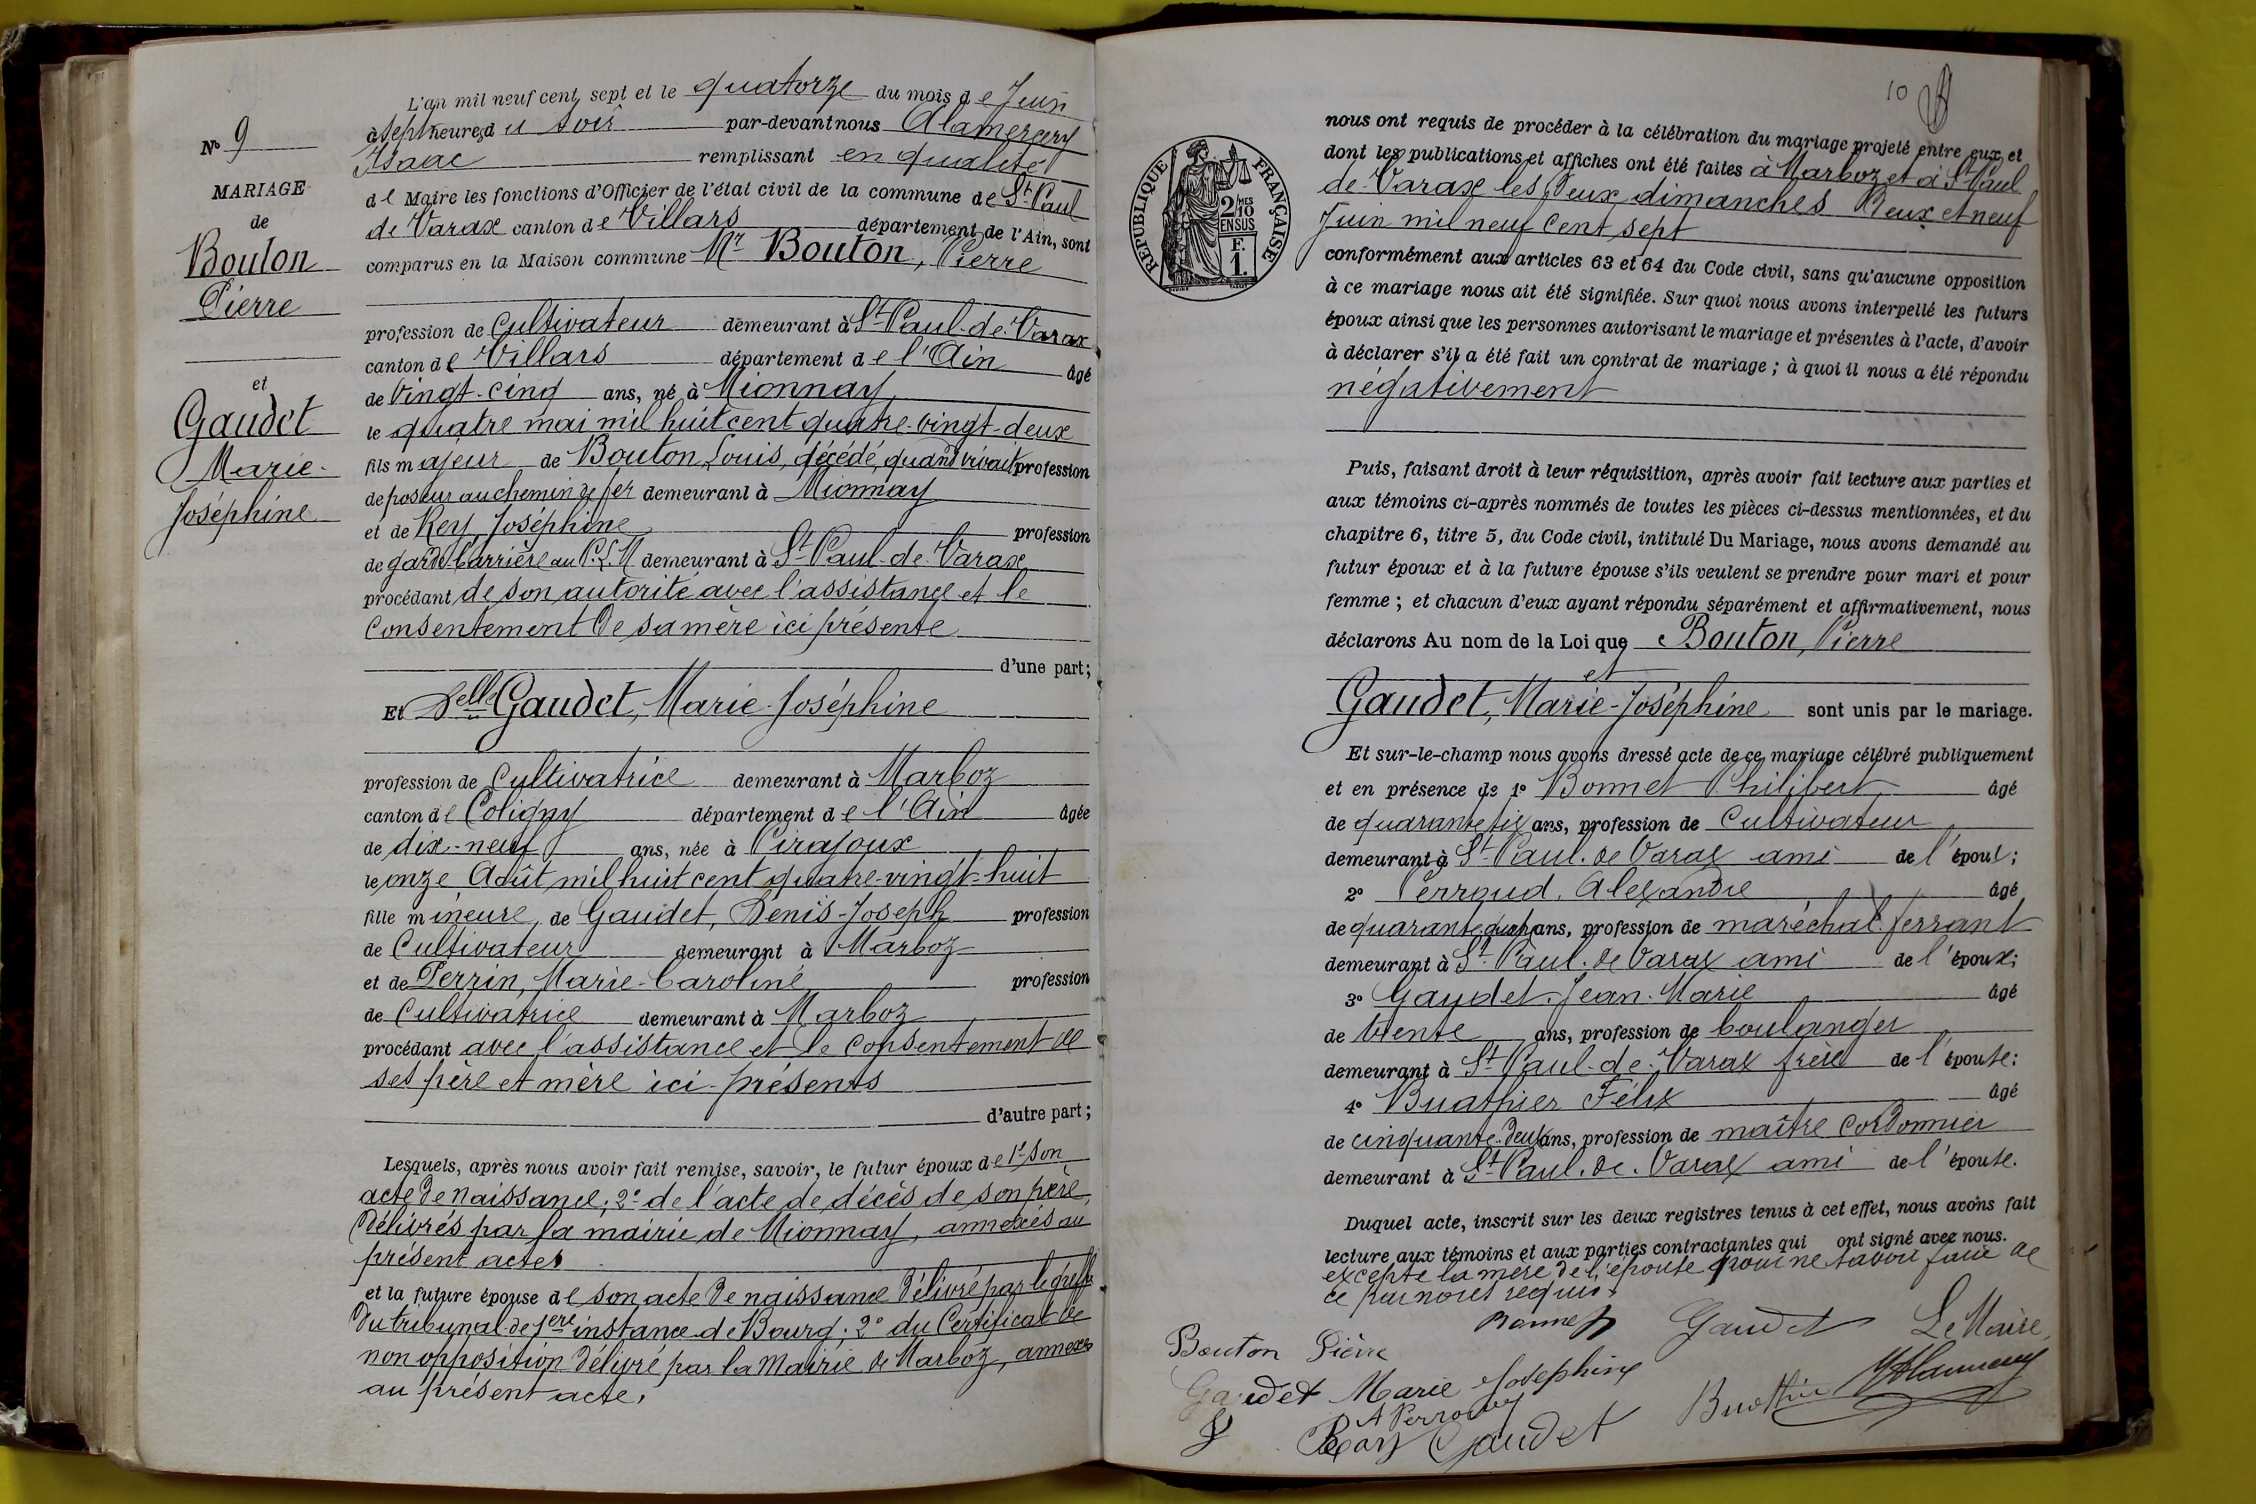 L'an mil neuf cent sept et le quatorze du mois de Juin
à sept heures du soir par-devant nous Alamercery
Isaac remplissant en qualité
de Maire les fonctions d'Officier de l'état civil de la commune de St Paul
de Varax canton de Villars département de l'Ain, sont
comparus en la Maison commune Mr Bouton, Pierre
profession de Cultivateur demeurant à St Paul-de-Varax
canton de Villars département de l'Ain âgé
de vingt-cinq ans, né à Mionnay
le quatre mai mil huit cent quatre-vingt-deux
fils majeur de Bouton Louis, décédé, quand vivait profession
de poseur au chemin de fer demeurant à Mionnay
et de Rey, Joséphine profession
de garde-barrière au P.L.M demeurant à St Paul-de-Varax
procédant de son autorité avec l'assistance et le
consentement de sa mère ici présente
d'une part;
Et Delle Gaudet, Marie-Joséphine
profession de Cultivatrice demeurant à Marboz
canton de Coligny département de l'Ain âgée
de dix-neuf ans, née à Pirajoux
le onze Août mil huit cent quatre-vingt-huit
fille mineure, de Gaudet, Denis-Joseph profession
de Cultivateur demeurant à Marboz
et de Perrin, Marie-Caroline profession
de Cultivatrice demeurant à Marboz
procédant avec l'assistance et le consentement de
ses père et mère ici-présents
d'autre part;
Lesquels, après nous avoir fait remise, savoir, le futur époux de 1° son
acte de naissance; 2° de l'acte de décès de son père,
délivrés par la mairie de Mionnay, annexés au
présent acte
et la future épouse de son acte de naissance délivré par le greffe
du tribunal de 1ère instance de Bourg; 2° du Certificat de
non opposition délivré par la Mairie de Marboz, annexés
au présent acte.
N° 9
MARIAGE
de
Bouton
Pierre
et
Gaudet
Marie-
Joséphine
10
RÉPUBLIQUE FRANÇAISE
2/10 MES
EN SUS
F.
1.
nous ont requis de procéder à la célébration du mariage projeté entre eux et
dont les publications et affiches ont été faites à Marboz et à St Paul
de-Varax les deux dimanches deux et neuf
Juin mil neuf cent sept
conformément aux articles 63 et 64 du Code civil, sans qu'aucune opposition
à ce mariage nous ait été signifiée. Sur quoi nous avons interpellé les futurs
époux ainsi que les personnes autorisant le mariage et présentes à l'acte, d'avoir
à déclarer s'il a été fait un contrat de mariage; à quoi il nous a été répondu
négativement
Puis, faisant droit à leur réquisition, après avoir fait lecture aux parties et
aux témoins ci-après nommés de toutes les pièces ci-dessus mentionnées, et du
chapitre 6, titre 5, du Code civil, intitulé Du Mariage, nous avons demandé au
futur époux et à la future épouse s'ils veulent se prendre pour mari et pour
femme; et chacun d'eux ayant répondu séparément et affirmativement, nous
déclarons Au nom de la Loi que Bouton, Pierre
et
Gaudet, Marie-Joséphine sont unis par le mariage.
Et sur-le-champ nous avons dressé acte de ce mariage célébré publiquement
et en présence de 1° Bonnet Philibert âgé
de quarante six ans, profession de Cultivateur
demeurant à St Paul-de Varax ami de l'époux;
2° Perroud, Alexandre âgé
de quarante quatre ans, profession de maréchal ferrant
demeurant à St Paul-de Varax ami de l'époux;
3° Gaudet, Jean-Marie âgé
de trente ans, profession de boulanger
demeurant à St Paul-de-Varax frère de l'épouse;
4° Buathier Félix âgé
de cinquante-deux ans, profession de maître cordonnier
demeurant à St Paul-de-Varax ami de l'épouse.
Duquel acte, inscrit sur les deux registres tenus à cet effet, nous avons fait
lecture aux témoins et aux parties contractantes qui ont signé avec nous.
excepté la mère de l'épouse pour ne savoir faire de
ce par nous requis.
Bonnet Gaudet Le Maire,
Bouton Pierre
Gaudet Marie Josephine Buathier
A Perroud
Rey Gaudet